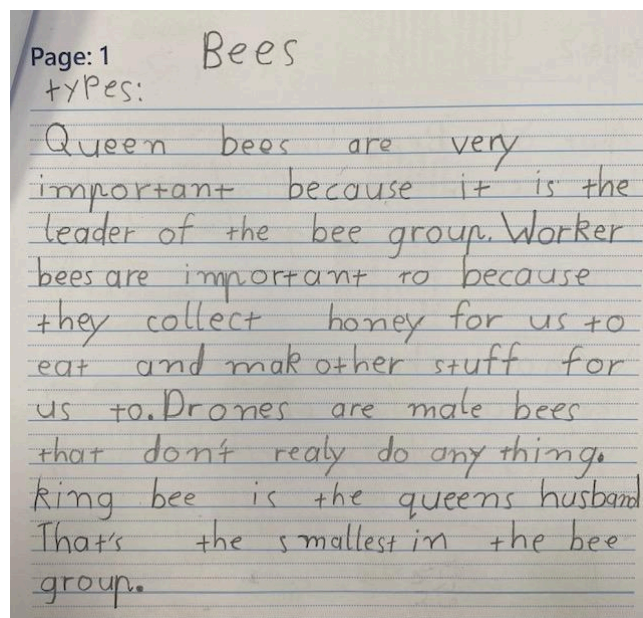 Page: 1 Bees
types:
Queen bees are very
important because it is the
leader of the bee group. Worker
bees are important to because
they collect honey for us to
eat and mak other stuff for
us to. Drones are male bees
that don't realy do any thing.
king bee is the queens husband
That's the smallest in the bee
group.